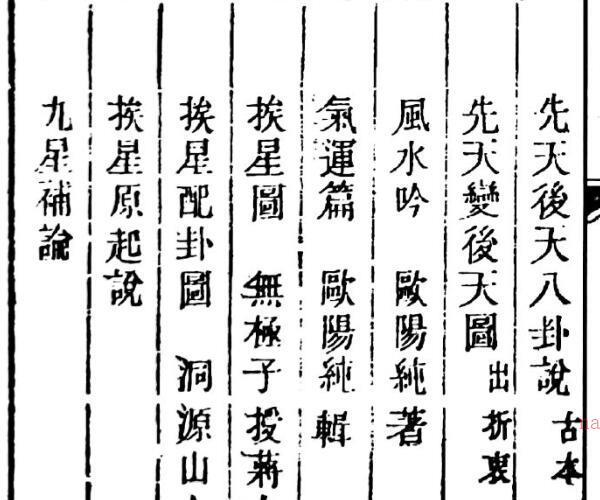 先天後天八卦說 古本
先天變後天圖 出折衷
風水吟 歐陽純著
氣運篇 歐陽純輯
挨星圖 無極子授蔣
挨星配卦圖 洞源山
挨星原起說
九星補說